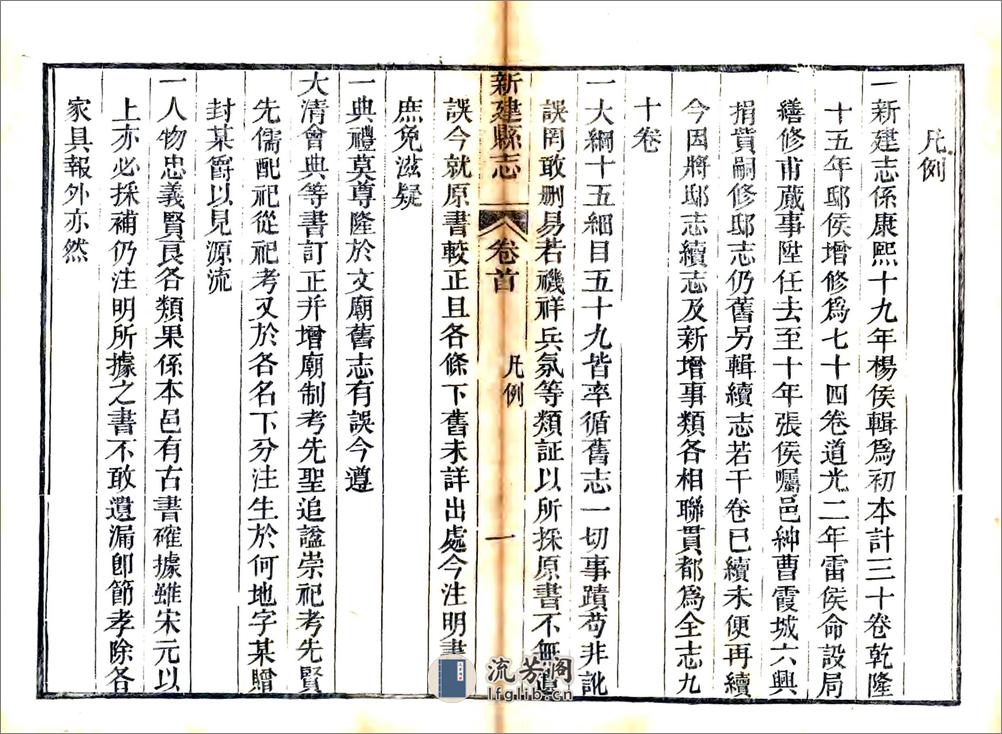 凡例
一新建志係康熙十九年楊侯輯爲初本計三十卷乾隆
十五年邸侯增修爲七十四卷道光二年雷侯命設局
繕修甫蕆事陞任去至十年張侯囑邑紳曹霞城六興
捐貲嗣修邸志仍舊另輯續志若干卷已續未便再續
今因將邸志續志及新增事類各相聯貫都爲全志九
十卷
一大綱十五細目五十九皆率循舊志一切事蹟苟非訛
誤罔敢刪易若禨祥兵氛等類証以所採原書不無
新建縣志 卷首 凡例 一
誤今就原書較正且各條下舊未詳出處今注明書
庶免滋疑
一典禮莫尊隆於文廟舊志有誤今遵
大清會典等書訂正并增廟制考先聖追謚崇祀考先賢
先儒配祀從祀考又於各名下分注生於何地字某贈
封某爵以見源流
一人物忠義賢良各類果係本邑有古書確據雖宋元以
上亦必採補仍注明所據之書不敢遺漏卽節孝除各
家具報外亦然
流芳阁
lfglib.cn